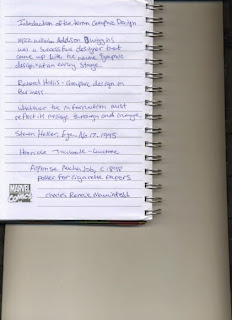 Introduction of the term Graphic Design
1922 William Addison Dwiggins
was a successful designer that
came up with the name graphic
design at an early stage.
Richard Hollis - Graphic design in
Business
whatever the information must
reflect its message through and image
Steven Heller, Eye, No 17. 1995
Henri de Toulouse-Lautrec
Alfonse Mucha Job, c 1898
poster for cigarette papers
Charles Rennie Mackintosh
MARVEL
COMICS